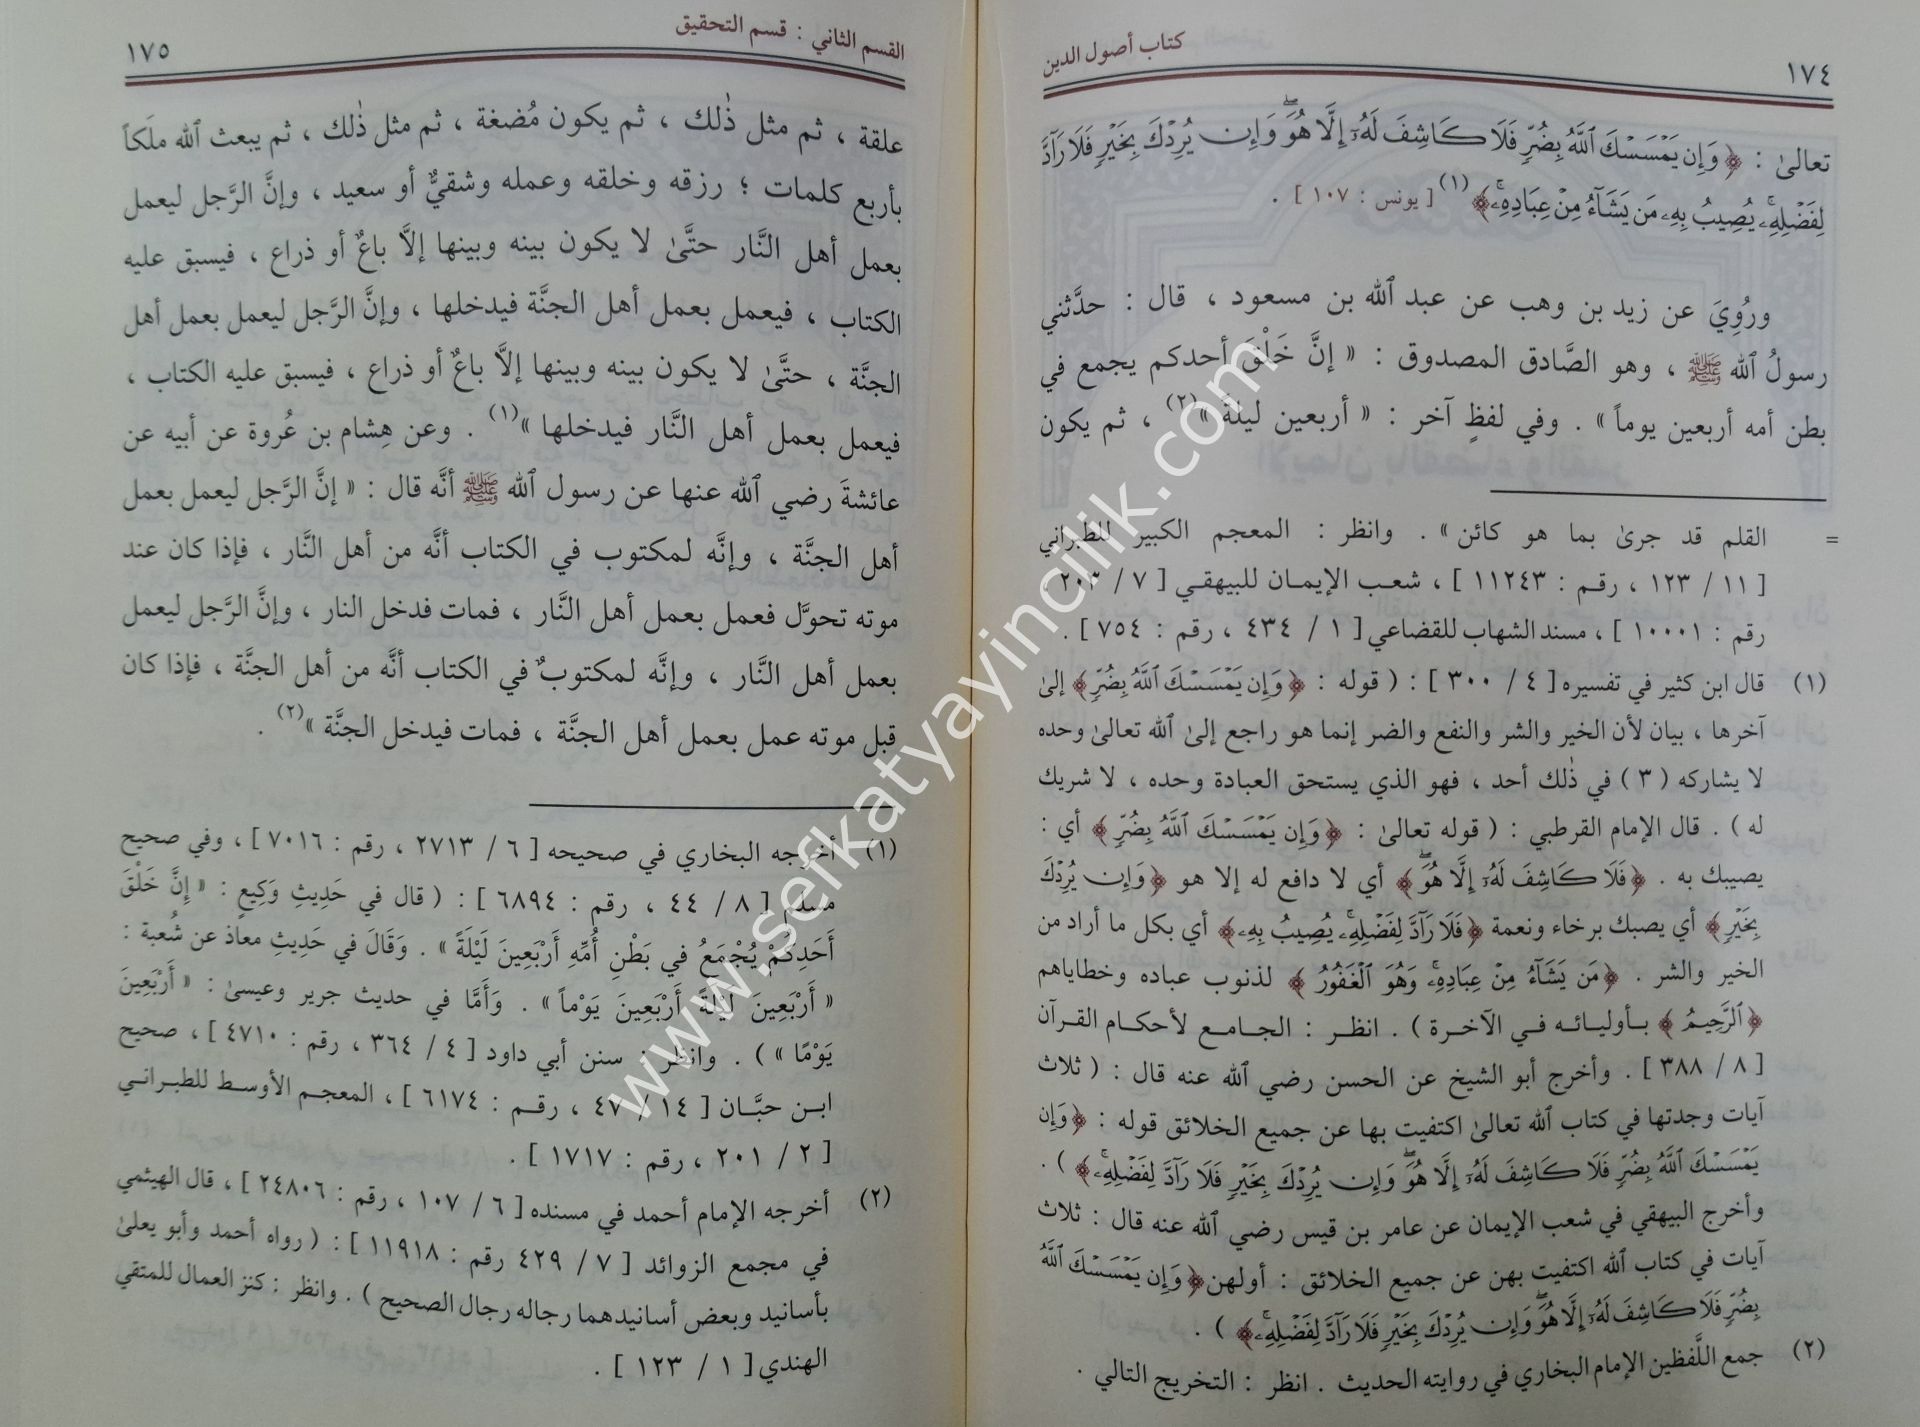 ١٧٤
كتاب أصول الدين
تعالىٰ : ﴿وَإِن يَمْسَسْكَ ٱللَّهُ بِضُرٍّ فَلَا كَاشِفَ لَهُۥٓ إِلَّا هُوَۖ وَإِن يُرِدْكَ بِخَيْرٍ فَلَا رَآدَّ
لِفَضْلِهِۦۚ يُصِيبُ بِهِۦ مَن يَشَآءُ مِنْ عِبَادِهِۦۚ﴾(١) [ يونس : ١٠٧ ] .
ورُوِيَ عن زيد بن وهب عن عبد ٱلله بن مسعود ، قال : حدَّثني
رسولُ ٱلله ﷺ ، وهو الصَّادق المصدوق : « إنَّ خَلْقَ أحدكم يجمع في
بطن أمه أربعين يوماً » . وفي لفظٍ آخر : « أربعين ليلة »(٢) ، ثم يكون
= القلم قد جرىٰ بما هو كائن » . وانظر : المعجم الكبير للطبراني
[ ١١ / ١٢٣ ، رقم : ١١٢٤٣ ] ، شعب الإيمان للبيهقي [ ٧ / ٢٠٣ ،
رقم : ١٠٠٠١ ] ، مسند الشهاب للقضاعي [ ١ / ٤٣٤ ، رقم : ٧٥٤ ] .
(١) قال ابن كثير في تفسيره [ ٤ / ٣٠٠ ] : ( قوله : ﴿وَإِن يَمْسَسْكَ ٱللَّهُ بِضُرٍّ﴾ إلىٰ
آخرها ، بيان لأن الخير والشر والنفع والضر إنما هو راجع إلىٰ ٱلله تعالىٰ وحده
لا يشاركه ( ٣ ) في ذٰلك أحد ، فهو الذي يستحق العبادة وحده ، لا شريك
له ) . قال الإمام القرطبي : ( قوله تعالىٰ : ﴿وَإِن يَمْسَسْكَ ٱللَّهُ بِضُرٍّ﴾ أي :
يصيبك به . ﴿فَلَا كَاشِفَ لَهُۥٓ إِلَّا هُوَۖ﴾ أي لا دافع له إلا هو ﴿وَإِن يُرِدْكَ
بِخَيْرٍ﴾ أي يصبك برخاء ونعمة ﴿فَلَا رَآدَّ لِفَضْلِهِۦۚ يُصِيبُ بِهِۦ﴾ أي بكل ما أراد من
الخير والشر . ﴿مَن يَشَآءُ مِنْ عِبَادِهِۦۚ وَهُوَ ٱلْغَفُورُ﴾ لذنوب عباده وخطاياهم
﴿ٱلرَّحِيمُ﴾ بأوليائه في الآخرة ) . انظر : الجامع لأحكام القرآن
[ ٨ / ٣٨٨ ] . وأخرج أبو الشيخ عن الحسن رضي ٱلله عنه قال : ( ثلاث
آيات وجدتها في كتاب ٱلله تعالىٰ اكتفيت بها عن جميع الخلائق قوله : ﴿وَإِن
يَمْسَسْكَ ٱللَّهُ بِضُرٍّ فَلَا كَاشِفَ لَهُۥٓ إِلَّا هُوَۖ وَإِن يُرِدْكَ بِخَيْرٍ فَلَا رَآدَّ لِفَضْلِهِۦۚ﴾ ) .
وأخرج البيهقي في شعب الإيمان عن عامر بن قيس رضي ٱلله عنه قال : ثلاث
آيات في كتاب ٱلله اكتفيت بهن عن جميع الخلائق : أولهن ﴿وَإِن يَمْسَسْكَ ٱللَّهُ
بِضُرٍّ فَلَا كَاشِفَ لَهُۥٓ إِلَّا هُوَۖ وَإِن يُرِدْكَ بِخَيْرٍ فَلَا رَآدَّ لِفَضْلِهِۦۚ﴾ ) .
(٢) جمع اللَّفظين الإمام البخاري في روايته الحديث . انظر : التخريج التالي .
القسم الثاني : قسم التحقيق
١٧٥
علقة ، ثم مثل ذٰلك ، ثم يكون مُضغة ، ثم مثل ذٰلك ، ثم يبعث ٱلله ملَكاً
بأربع كلمات ؛ رزقه وخلقه وعمله وشقيٌّ أو سعيد ، وإنَّ الرَّجل ليعمل
بعمل أهل النَّار حتَّىٰ لا يكون بينه وبينها إلاَّ باعٌ أو ذراع ، فيسبق عليه
الكتاب ، فيعمل بعمل أهل الجنَّة فيدخلها ، وإنَّ الرَّجل ليعمل بعمل أهل
الجنَّة ، حتَّىٰ لا يكون بينه وبينها إلاَّ باعٌ أو ذراع ، فيسبق عليه الكتاب ،
فيعمل بعمل أهل النَّار فيدخلها »(١) . وعن هِشام بن عُروة عن أبيه عن
عائشةَ رضي ٱلله عنها عن رسول ٱلله ﷺ أنَّه قال : « إنَّ الرَّجل ليعمل بعمل
أهل الجنَّة ، وإنَّه لمكتوب في الكتاب أنَّه من أهل النَّار ، فإذا كان عند
موته تحوَّل فعمل بعمل أهل النَّار ، فمات فدخل النار ، وإنَّ الرَّجل ليعمل
بعمل أهل النَّار ، وإنَّه لمكتوبٌ في الكتاب أنَّه من أهل الجنَّة ، فإذا كان
قبل موته عمل بعمل أهل الجنَّة ، فمات فيدخل الجنَّة »(٢) .
(١) أخرجه البخاري في صحيحه [ ٦ / ٢٧١٣ ، رقم : ٧٠١٦ ] ، وفي صحيح
مسلم [ ٨ / ٤٤ ، رقم : ٦٨٩٤ ] : ( قال في حَدِيثِ وَكِيعٍ : « إِنَّ خَلْقَ
أَحَدِكُمْ يُجْمَعُ في بَطْنِ أُمِّهِ أَرْبَعِينَ لَيْلَةً » . وَقَالَ في حَدِيثِ معاذ عن شُعبة :
« أَرْبَعِينَ لَيْلَةً أَرْبَعِينَ يَوْماً » . وَأَمَّا في حديث جرير وعيسىٰ : « أَرْبَعِينَ
يَوْمًا » ) . وانظر : سنن أبي داود [ ٤ / ٣٦٤ ، رقم : ٤٧١٠ ] ، صحيح
ابن حبَّان [ ١٤ / ٤٧ ، رقم : ٦١٧٤ ] ، المعجم الأوسط للطبراني
[ ٢ / ٢٠١ ، رقم : ١٧١٧ ] .
(٢) أخرجه الإمام أحمد في مسنده [ ٦ / ١٠٧ ، رقم : ٢٤٨٠٦ ] ، قال الهيثمي
في مجمع الزوائد [ ٧ / ٤٢٩ رقم : ١١٩١٨ ] : ( رواه أحمد وأبو يعلىٰ
بأسانيد وبعض أسانيدهما رجاله رجال الصحيح ) . وانظر : كنز العمال للمتقي
الهندي [ ١ / ١٢٣ ] .
www.sefkatyayincilik.com